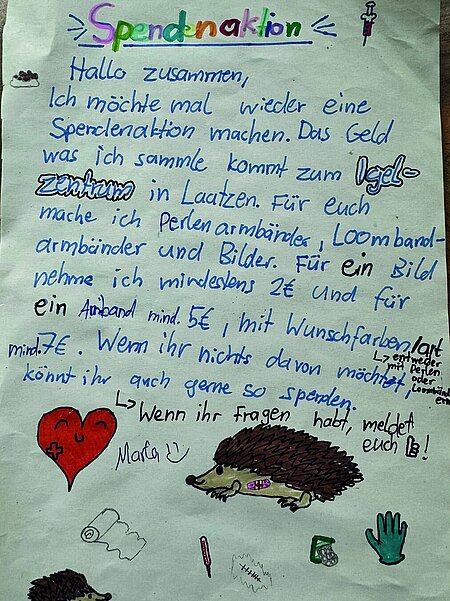 Spendenaktion
Hallo zusammen,
Ich möchte mal wieder eine
Spendenaktion machen. Das Geld
was ich sammle kommt zum Igel-
zentrum in Laatzen. Für euch
mache ich Perlenarmbänder, Loomband-
armbänder und Bilder. Für ein Bild
nehme ich mindestens 2€ und für
ein Armband mind. 5€, mit Wunschfarben/art
mind. 7€. Wenn ihr nichts davon möchtet,
↳ entweder
mit Perlen
oder
Loombänd
ern
könnt ihr auch gerne so spenden.
↳ Wenn ihr Fragen habt, meldet
euch!
Marta